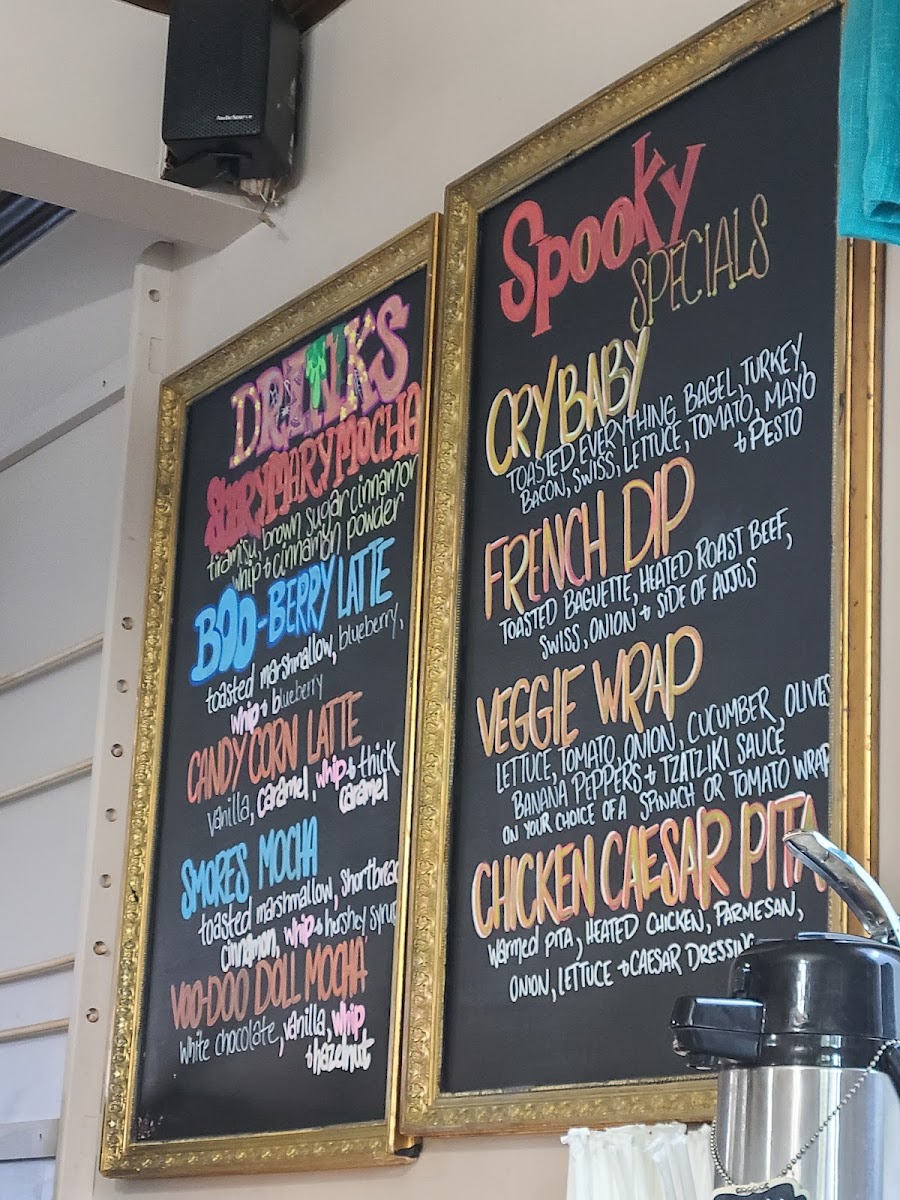 AudioSource
DRINKS
SCARY MARY MOCHA
tiramisu, brown sugar cinnamon
whip + cinnamon powder
BOO-BERRY LATTE
toasted marshmallow, blueberry,
whip + blueberry
CANDY CORN LATTE
vanilla, caramel, whip + thick
caramel
SMORES MOCHA
toasted marshmallow, Shortbread
cinnamon, whip + hershey syrup
VOO-DOO DOLL MOCHA
white chocolate, vanilla, whip
+ hazelnut
Spooky
SPECIALS
CRY BABY
TOASTED EVERYTHING BAGEL, TURKEY,
BACON, SWISS, LETTUCE, TOMATO, MAYO
+ PESTO
FRENCH DIP
TOASTED BAGUETTE, HEATED ROAST BEEF,
SWISS, ONION + SIDE OF AUJUS
VEGGIE WRAP
LETTUCE, TOMATO, ONION, CUCUMBER, OLIVES
BANANA PEPPERS + TZATZIKI SAUCE
ON YOUR CHOICE OF A SPINACH OR TOMATO WRAP
CHICKEN CAESAR PITA
WARMED PITA, HEATED CHICKEN, PARMESAN,
ONION, LETTUCE + CAESAR DRESSING